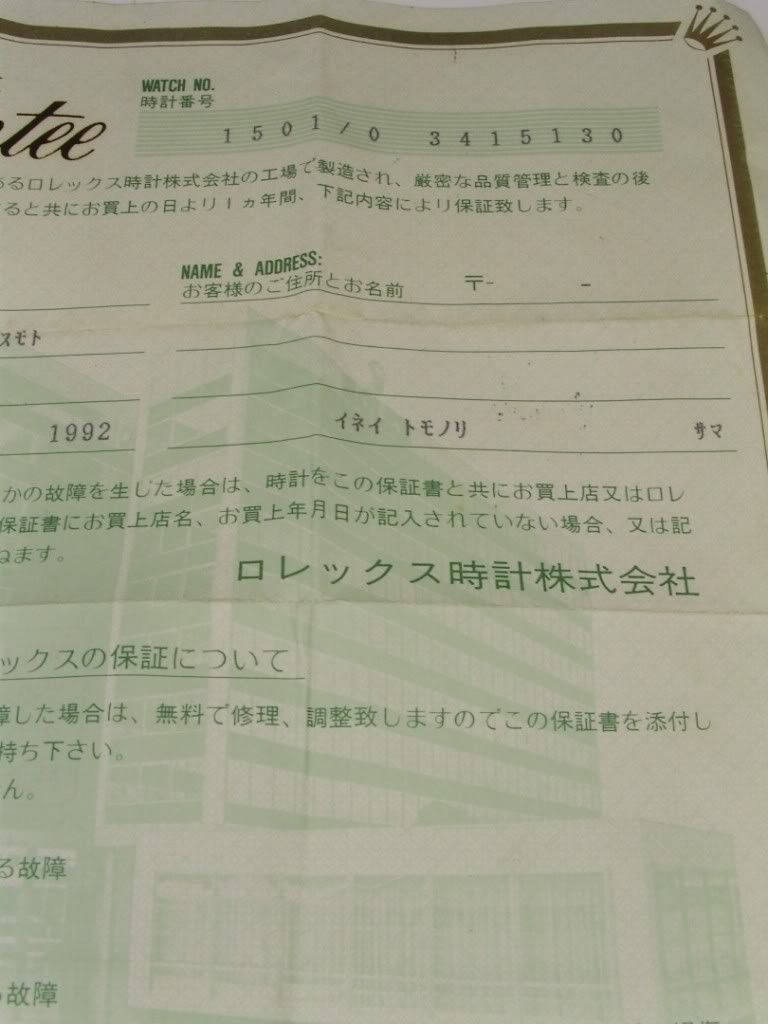 WATCH NO.
時計番号
1501/0 3415130
tee
あるロレックス時計株式会社の工場で製造され、厳密な品質管理と検査の後
ると共にお買上の日より1ヵ年間、下記内容により保証致します。
NAME & ADDRESS:
お客様のご住所とお名前 〒- -
スモト
1992 イネイ トモノリ サマ
かの故障を生じた場合は、時計をこの保証書と共にお買上店又はロレ
保証書にお買上店名、お買上年月日が記入されていない場合、又は記
ねます。
ロレックス時計株式会社
ックスの保証について
障した場合は、無料で修理、調整致しますのでこの保証書を添付し
持ち下さい。
ん。
る故障
故障